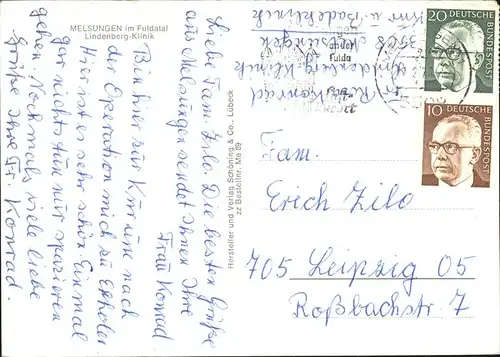 MELSUNGEN im Fuldatal
Lindenberg-Klinik
Liebe Fam. Zilo. Die besten Grüße
aus Melsungen sendet Ihnen Ihre
Frau Konrad.
Bin hier zur Kur um nach
der Operation mich zu erholen
Hier ist es sehr schön. Einmal
gar nichts tun nur spazieren
gehen. Nochmals viele liebe
Grüße Ihre Fr. Konrad.
Hersteller und Verlag Schöning & Co., Lübeck
zz Bestellnr. Ma 89
Fr Konrad
Lindenberg Klinik
3508 Melsungen
Kur u Badeklinik
an der
Fulda
20
DEUTSCHE
BUNDESPOST
10
DEUTSCHE
BUNDESPOST
Fam.
Erich Zilo
705 Leipzig 05
Roßbachstr. 7